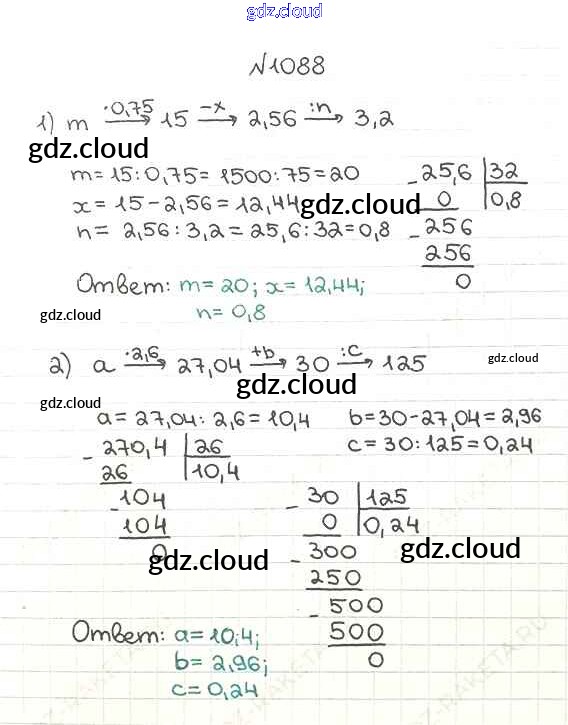 gdz.cloud
№1088
1) m —·0,75→ 15 —-x→ 2,56 —:n→ 3,2
gdz.cloud
m = 15 : 0,75 = 1500 : 75 = 20
x = 15 - 2,56 = 12,44
gdz.cloud
n = 2,56 : 3,2 = 25,6 : 32 = 0,8
- 25,6 | 32
0 | 0,8
- 256
256
0
Ответ: m = 20; x = 12,44;
n = 0,8
gdz.cloud
2) a —·2,6→ 27,04 —+b→ 30 —:c→ 125
gdz.cloud
gdz.cloud
gdz.cloud
a = 27,04 : 2,6 = 10,4
b = 30 - 27,04 = 2,96
c = 30 : 125 = 0,24
- 270,4 | 26
26 | 10,4
- 104
104
0
gdz.cloud
- 30 | 125
0 | 0,24
- 300
250
- 500
500
0
gdz.cloud
Ответ: a = 10,4;
b = 2,96;
c = 0,24